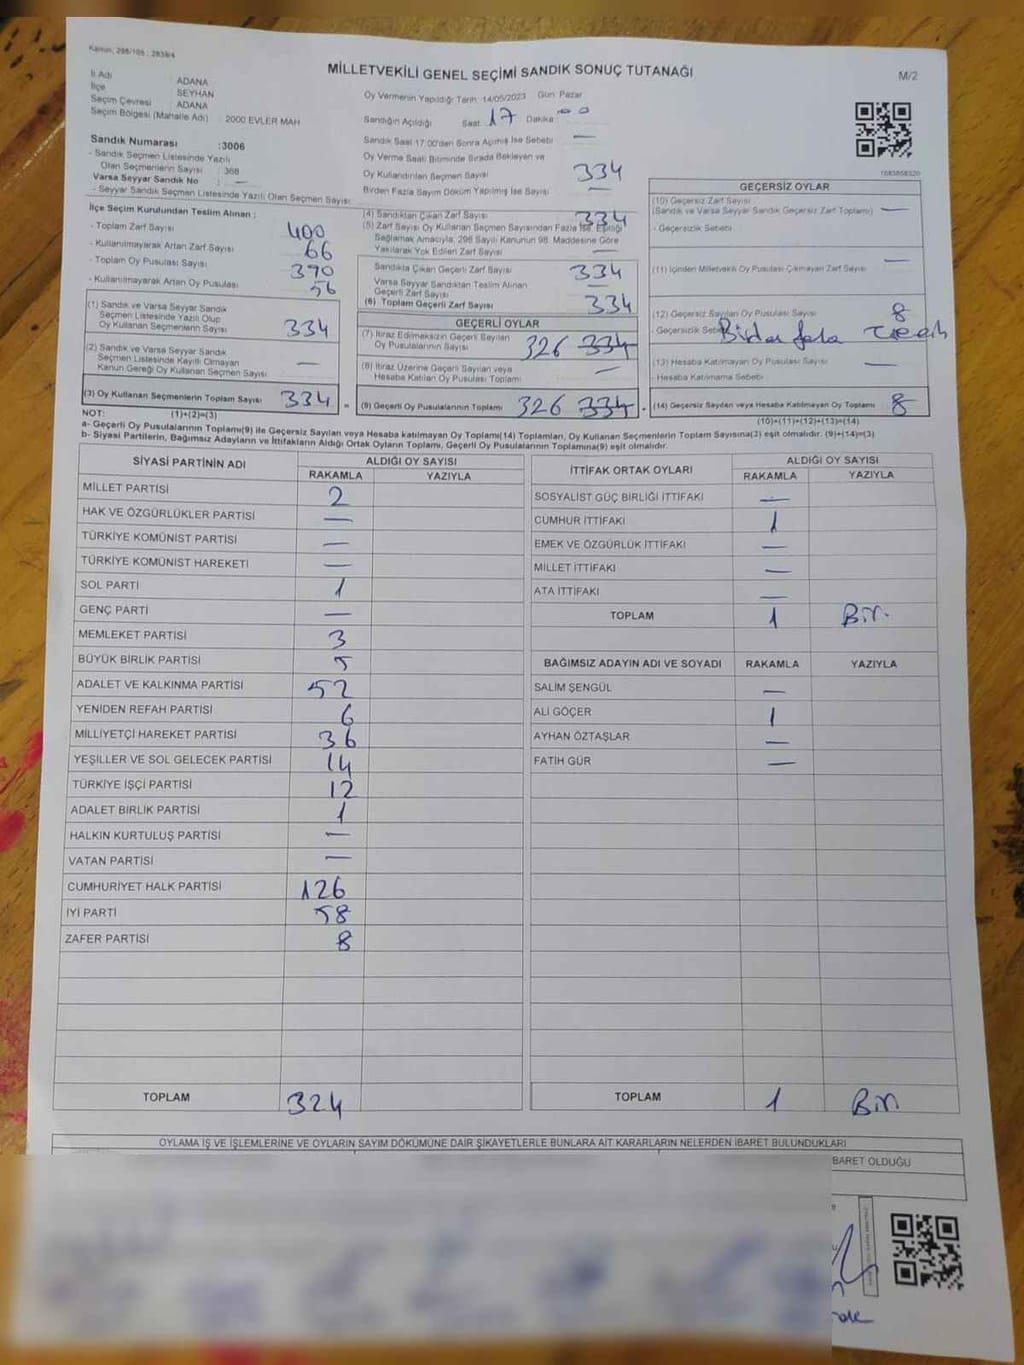 Kanun; 298/105 ; 2839/4
MİLLETVEKİLİ GENEL SEÇİMİ SANDIK SONUÇ TUTANAĞI
M/2
İl Adı : ADANA
İlçe : SEYHAN
Seçim Çevresi : ADANA
Seçim Bölgesi (Mahalle Adı) : 2000 EVLER MAH
Sandık Numarası : 3006
- Sandık Seçmen Listesinde Yazılı
Olan Seçmenlerin Sayısı : 368
Varsa Seyyar Sandık No : —
- Seyyar Sandık Seçmen Listesinde Yazılı Olan Seçmen Sayısı:
İlçe Seçim Kurulundan Teslim Alınan :
- Toplam Zarf Sayısı 400
- Kullanılmayarak Artan Zarf Sayısı 66
- Toplam Oy Pusulası Sayısı 390
- Kullanılmayarak Artan Oy Pusulası 56
(1) Sandık ve Varsa Seyyar Sandık
Seçmen Listesinde Yazılı Olup
Oy Kullanan Seçmenlerin Sayısı 334
(2) Sandık ve Varsa Seyyar Sandık
Seçmen Listesinde Kayıtlı Olmayan
Kanun Gereği Oy Kullanan Seçmen Sayısı —
(3) Oy Kullanan Seçmenlerin Toplam Sayısı 334
Oy Vermenin Yapıldığı Tarih: 14/05/2023 Gün: Pazar
Sandığın Açıldığı Saat: 17 Dakika: 00
Sandık Saat 17:00'den Sonra Açılmış İse Sebebi —
Oy Verme Saati Bitiminde Sırada Bekleyen ve
Oy Kullandırılan Seçmen Sayısı 334
Birden Fazla Sayım Döküm Yapılmış İse Sayısı —
(4) Sandıktan Çıkan Zarf Sayısı 334
(5) Zarf Sayısı Oy Kullanan Seçmen Sayısından Fazla İse, Eşitliği
Sağlamak Amacıyla, 298 Sayılı Kanunun 98. Maddesine Göre
Yakılarak Yok Edilen Zarf Sayısı —
Sandıkta Çıkan Geçerli Zarf Sayısı 334
Varsa Seyyar Sandıktan Teslim Alınan
Geçerli Zarf Sayısı —
(6) Toplam Geçerli Zarf Sayısı 334
GEÇERLİ OYLAR
(7) İtiraz Edilmeksizin Geçerli Sayılan
Oy Pusulalarının Sayısı 326 334
(8) İtiraz Üzerine Geçerli Sayılan veya
Hesaba Katılan Oy Pusulası Toplamı —
(9) Geçerli Oy Pusulalarının Toplamı 326 334
GEÇERSİZ OYLAR
(10) Geçersiz Zarf Sayısı
(Sandık ve Varsa Seyyar Sandık Geçersiz Zarf Toplamı) —
- Geçersizlik Sebebi
(11) İçinden Milletvekili Oy Pusulası Çıkmayan Zarf Sayısı —
(12) Geçersiz Sayılan Oy Pusulası Sayısı 8
- Geçersizlik Sebebi
(13) Hesaba Katılmayan Oy Pusulası Sayısı —
- Hesaba Katılmama Sebebi
(14) Geçersiz Sayılan veya Hesaba Katılmayan Oy Toplamı 8
NOT: (1)+(2)=(3) (10)+(11)+(12)+(13)=(14)
a- Geçerli Oy Pusulalarının Toplamı(9) ile Geçersiz Sayılan veya Hesaba katılmayan Oy Toplamı(14) Toplamları, Oy Kullanan Seçmenlerin Toplam Sayısına(3) eşit olmalıdır. (9)+(14)=(3)
b- Siyasi Partilerin, Bağımsız Adayların ve İttifakların Aldığı Ortak Oyların Toplamı, Geçerli Oy Pusulalarının Toplamına(9) eşit olmalıdır.
SİYASİ PARTİNİN ADI ALDIĞI OY SAYISI
RAKAMLA YAZIYLA
MİLLET PARTİSİ 2
HAK VE ÖZGÜRLÜKLER PARTİSİ —
TÜRKİYE KOMÜNİST PARTİSİ —
TÜRKİYE KOMÜNİST HAREKETİ —
SOL PARTİ 1
GENÇ PARTİ —
MEMLEKET PARTİSİ 3
BÜYÜK BİRLİK PARTİSİ 5
ADALET VE KALKINMA PARTİSİ 52
YENİDEN REFAH PARTİSİ 6
MİLLİYETÇİ HAREKET PARTİSİ 36
YEŞİLLER VE SOL GELECEK PARTİSİ 14
TÜRKİYE İŞÇİ PARTİSİ 12
ADALET BİRLİK PARTİSİ 1
HALKIN KURTULUŞ PARTİSİ —
VATAN PARTİSİ —
CUMHURİYET HALK PARTİSİ 126
İYİ PARTİ 58
ZAFER PARTİSİ 8
TOPLAM 324
İTTİFAK ORTAK OYLARI ALDIĞI OY SAYISI
RAKAMLA YAZIYLA
SOSYALİST GÜÇ BİRLİĞİ İTTİFAKI —
CUMHUR İTTİFAKI 1
EMEK VE ÖZGÜRLÜK İTTİFAKI —
MİLLET İTTİFAKI —
ATA İTTİFAKI —
TOPLAM 1 Bir.
BAĞIMSIZ ADAYIN ADI VE SOYADI RAKAMLA YAZIYLA
SALİM ŞENGÜL —
ALİ GÖÇER 1
AYHAN ÖZTAŞLAR —
FATİH GÜR —
TOPLAM 1 Bir.
OYLAMA İŞ VE İŞLEMLERİNE VE OYLARIN SAYIM DÖKÜMÜNE DAİR ŞİKAYETLERLE BUNLARA AİT KARARLARIN NELERDEN İBARET BULUNDUKLARI
BARET OLDUĞU